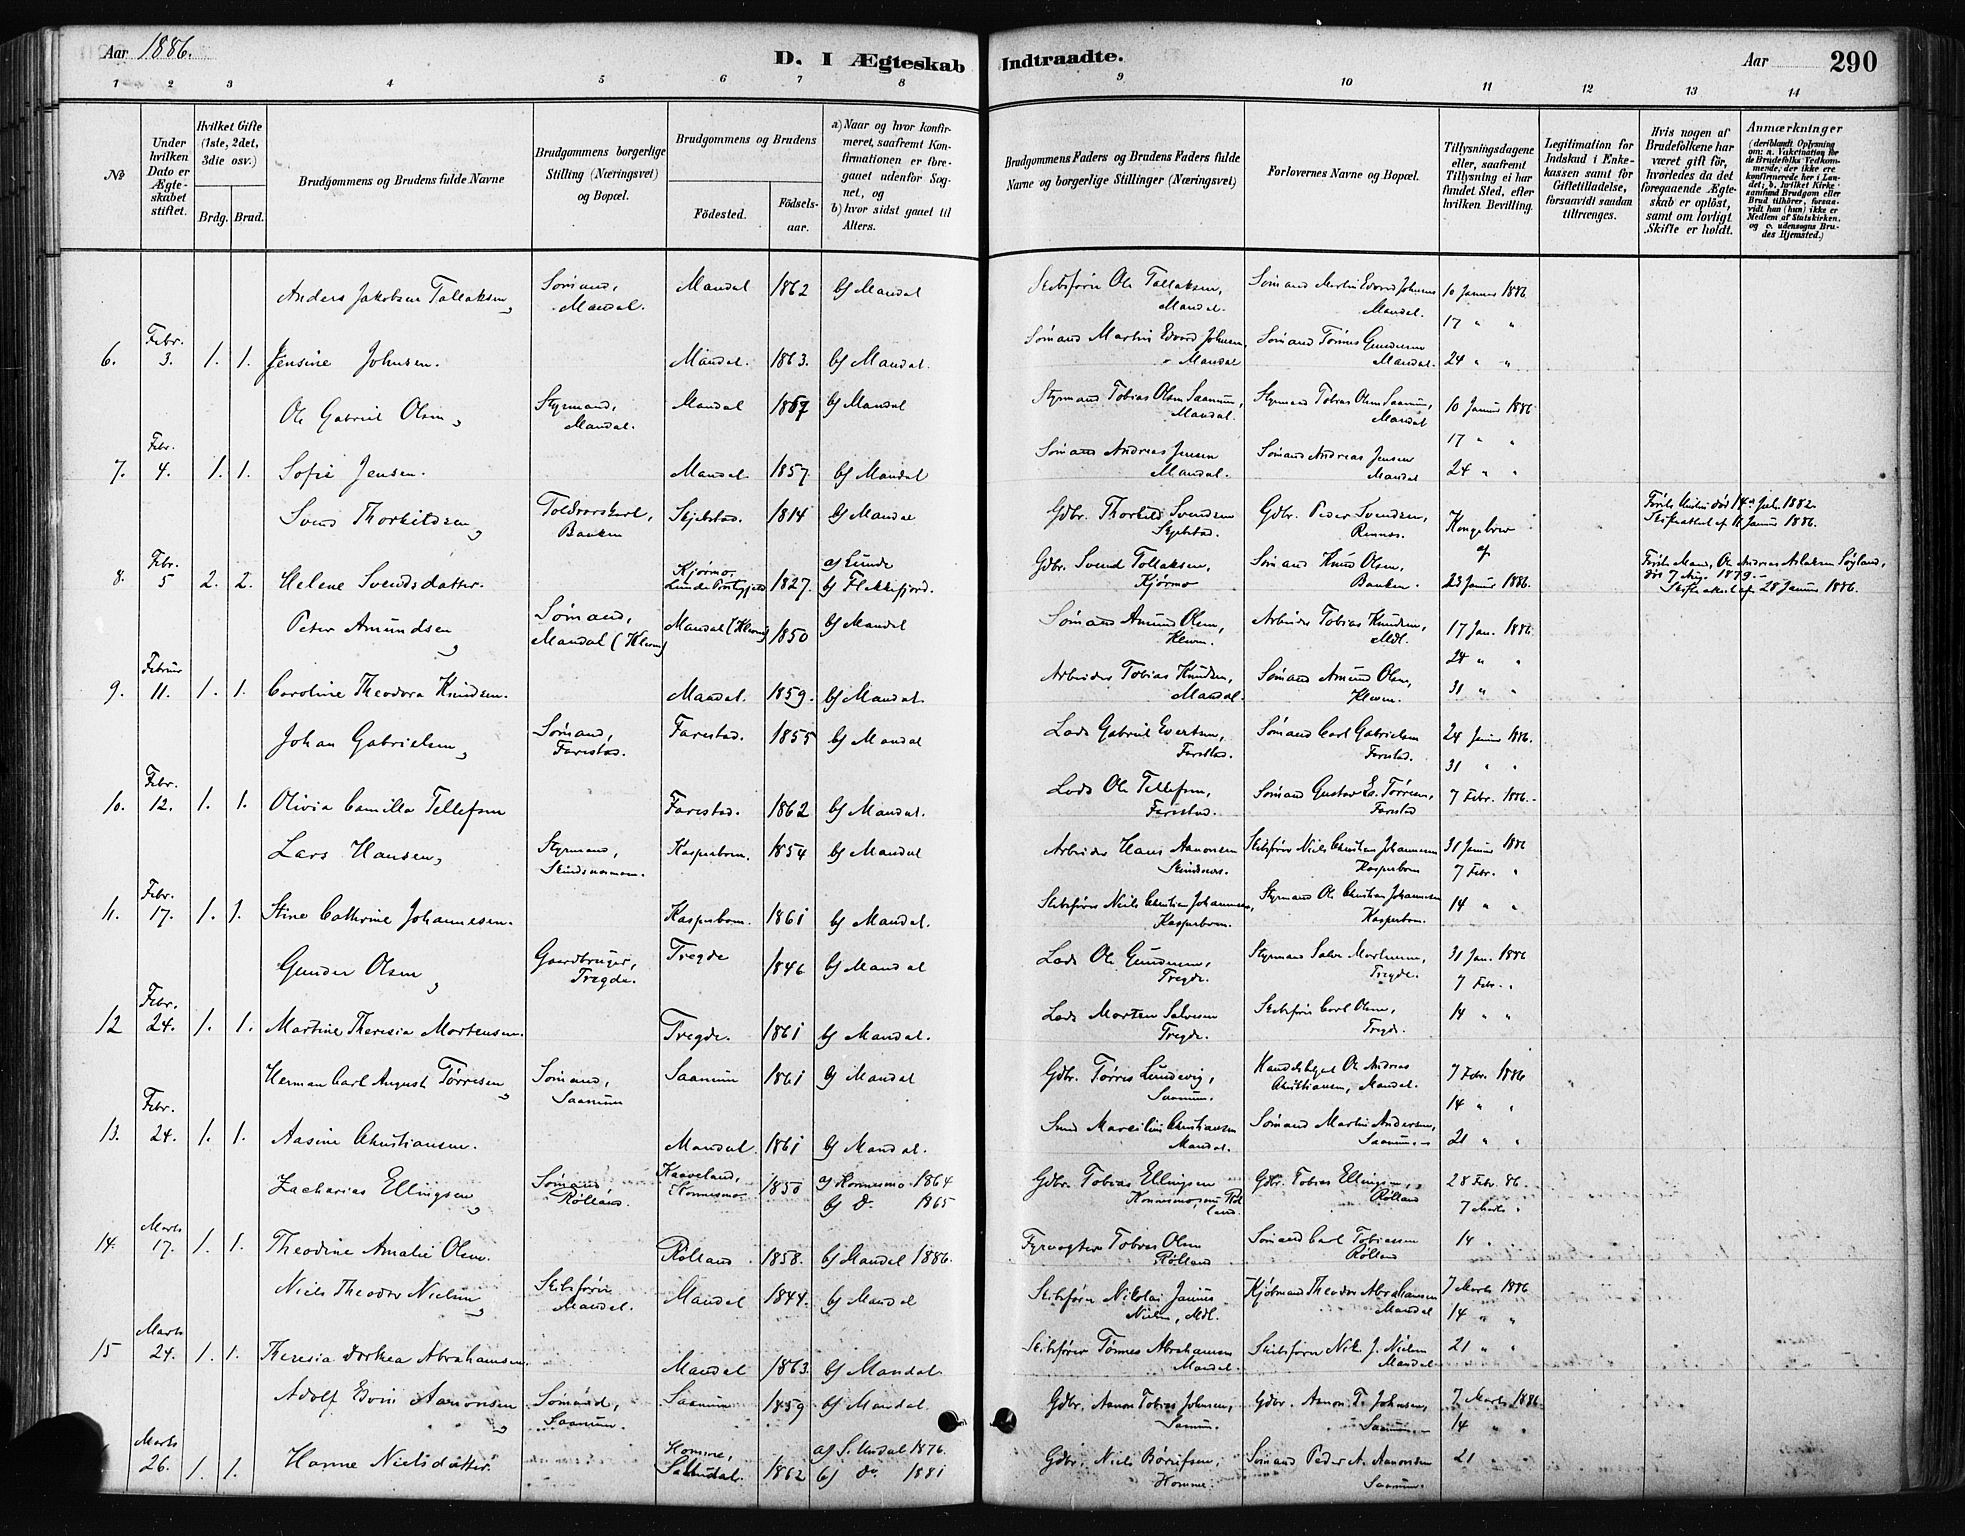 Aar 1886.
D. I Ægteskab Indtraadte.
Aar
290
1 2 3 4 5 6 7 8 9 10 11 12 13 14
No
Under hvilken Dato er Ægteskabet stiftet.
Hvilket Gifte (1ste, 2det, 3die osv.)
Brdg. Brud.
Brudgommens og Brudens fulde Navne
Brudgommens borgerlige Stilling (Næringsvei) og Bopæl.
Brudgommens og Brudens
Födested.
Födselsaar.
a) Naar og hvor konfirmeret, saafremt Konfirmationen er foregaaet udenfor Sognet, og
b) hvor sidst gaaet til Alters.
Brudgommens Faders og Brudens Faders fulde Navne og borgerlige Stillinger (Næringsvei)
Forlovernes Navne og Bopæl.
Tillysningsdagene eller, saafremt Tillysning ei har fundet Sted, efter hvilken Bevilling.
Legitimation for Indskud i Enkekassen samt for Giftetilladelse, forsaavidt saadan tiltrænges.
Hvis nogen af Brudefolkene har været gift för, hvorledes da det foregaaende Ægteskab er oplöst, samt om lovligt Skifte er holdt.
Anmærkninger (deriblandt Oplysning om: a. Vakcination for de Brudefolks Vedkommende, der ikke ere konfirmerede her i Landet; b. hvilket Kirkesamfund Brudgom eller Brud tilhörer, forsaavidt han (hun) ikke er Medlem af Statskirken, og c. udensogns Brudes Hjemsted.)
Anders Jakobsen Tallaksen, Sømand, Mandal. Mandal 1862 b) Mandal Skibsfører Ole Tallaksen, Mandal. Sømand Martin Edvard Johnsen Mandal. 10 Januar 1886
17 " "
6. Febr. 3. 1. 1. Jensine Johnsen. Mandal. 1863. b) Mandal. Sømand Martin Edvard Johnsen, Mandal Sømand Tønnes Gundersen Mandal. 24 " "
Ole Gabriel Olsen, Styrmand, Mandal. Mandal b) Mandal Styrmand Tobias Olsen Saanum, Mandal. Styrmand Tobias Olsen Saanum, Mandal 10 Januar 1886
17 " "
7. Febr. 4. 1. 1. Sofie Jensen. Mandal 1857. b) Mandal Sømand Andreas Jensen Mandal. Sømand Andreas Jensen Mandal 24 " "
Svend Thorkildsen, Toldvorskarl, Banken Skjebstad. 1814 b) Mandal Gdbr. Thorkild Svendsen Gdbr. Peder Svendsen, Kongebrev af
8. Febr. 5 2. 2. Helene Svendsdatter. Kjørmo, Lunde 1827. a) Lunde b) Flekkefjord. Gdbr. Svend Tollaksen, Kjørmo Sømand Knud Olsen, Banken. 23 Januar 1886. Første Mand, Ole Andreas Aslaksen død 7 Aug. 1879. Skifteattest af 28 Januar 1886.
Peter Amundsen, Sømand, Mandal (Kleven) Mandal (Kleven) 1850 b) Mandal Sømand Amund Olsen, Kleven. Arbeider Tobias Knudsen, Mdl. 17 Jan. 1886
24 " "
9. Februar 11. 1. 1. Caroline Theodora Knudsen. Mandal. 1859. b) Mandal. Arbeider Tobias Knudsen, Mandal. Sømand Amund Olsen, Kleven. 31 " "
Johan Gabrielsen, Sømand, Farestad. Farestad. 1855 b) Mandal Lods Gabriel Evertsen, Farestad. Sømand Carl Gabrielsen Farestad. 24 Januar 1886.
31 " "
10. Febr. 12. 1. 1. Olivia Camilla Tellefsen Farestad. 1862 b) Mandal. Lods Ole Tellefsen, Farestad. Sømand Gustav Tørresen, Farestad 7 Febr. 1886.
Lars Hansen, Styrmand, Kasperbom. 1854 b) Mandal Arbeider Hans Aanonsen Skindsnes. Skibsfører Niels Christian Johannesen Kasperbom 31 Januar 1886
7 Febr. "
11. Febr. 17. 1. 1. Stine Cathrine Johannesen. Kasperbom. 1861 b) Mandal. Skibsfører Niels Christian Johannesen, Kasperbom. Styrmand Ole Christian Johannesen Kasperbom. 14 " "
Gunder Olsen, Gaardbruger, Tregde. Tregde 1846 b) Mandal Lods Ole Gundersen, Tregde. Styrmand Salve Mortensen, Tregde. 31 Jan. 1886
7 Febr. "
12 Febr. 24. 1. 1. Martine Theresia Mortensen. Tregde. 1861 b) Mandal. Lods Morten Salvesen Tregde. Skibsfører Carl Olsen, Tregde. 14 " "
Herman Carl August Tørresen, Sømand, Saanum Saanum 1861 b) Mandal Gdbr. Tørres Lundevig, Saanum. Ole Andreas Christiansen, Mandal. 7 Febr. 1886
14 " "
13. Febr. 24. 1. 1. Aasine Christiansen. Mandal. 1861 b) Mandal. Smed Marcilius Christiansen Mandal. Sømand Martin Andersen, Saanum. 21 " "
Zacharias Ellingsen, Sømand Rølland. Kaaveland, Konnesmo 1850 a) Konnesmo 1864 b) do. 1865 Gdbr. Tobias Ellingsen Gdbr. Tobias Ellingsen, Rølland 28 Febr. 86.
7 Marts "
14. Marts 17. 1. 1. Theodine Amalie Olsen. Rølland 1858. b) Mandal 1886. Fyrvogter Tobias Olsen Rølland Sømand Carl Tobiassen Rølland 14 "
Niels Theodor Nielsen, Skibsfører Mandal. Mandal 1844. b) Mandal Skibsfører Nikolai Nielsen, Mdl. Kjøbmand Theodor Abrahamsen Mandal 7 Marts 1886
14 " "
15 Marts 24. 1. 1. Theresia Dorthea Abrahamsen. Mandal 1863. b) Mandal Skibsfører Tønnes Abrahamsen Mandal. Skibsfører Nik. J. Nielsen Mandal. 21 " "
Adolf Aanonsen, Sømand, Saanum. Saanum 1859 b) Mandal. Gdbr. Aanon Tobias Johnsen, Saanum. Gdbr. Aanon T. Johnsen, Saanum. 7 Marts 1886
14 " "
Marts 26. 1. 1. Hanne Nielsdatter. Homme, 1862 a) S. Undal 1876. b) do 1881 Gdbr. Niels Børufsen, Homme. Sømand Peder A. Aanonsen Saanum. 21